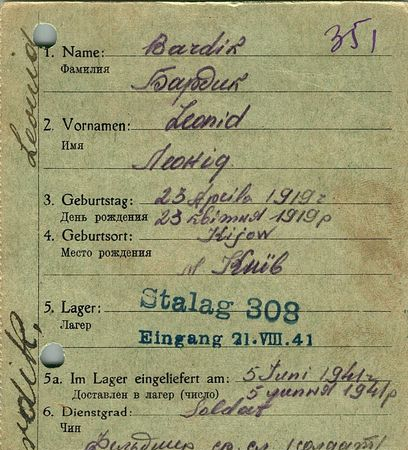 351
1. Name: Bardik
Фамилия
Бардик
2. Vornamen: Leonid
Имя
Леонід
3. Geburtstag: 23 Aprila 1919 г
День рождения 23 квітня 1919 р
4. Geburtsort: Kijow
Место рождения
м. Київ
5. Lager: Stalag 308
Лагерь
Eingang 21.VIII.41
5a. Im Lager eingeliefert am: 5 Juni 1941 г
Доставлен в лагерь (число) 5 липня 1941 р
6. Dienstgrad: Soldat
Чин
Фельдшер
Leonid